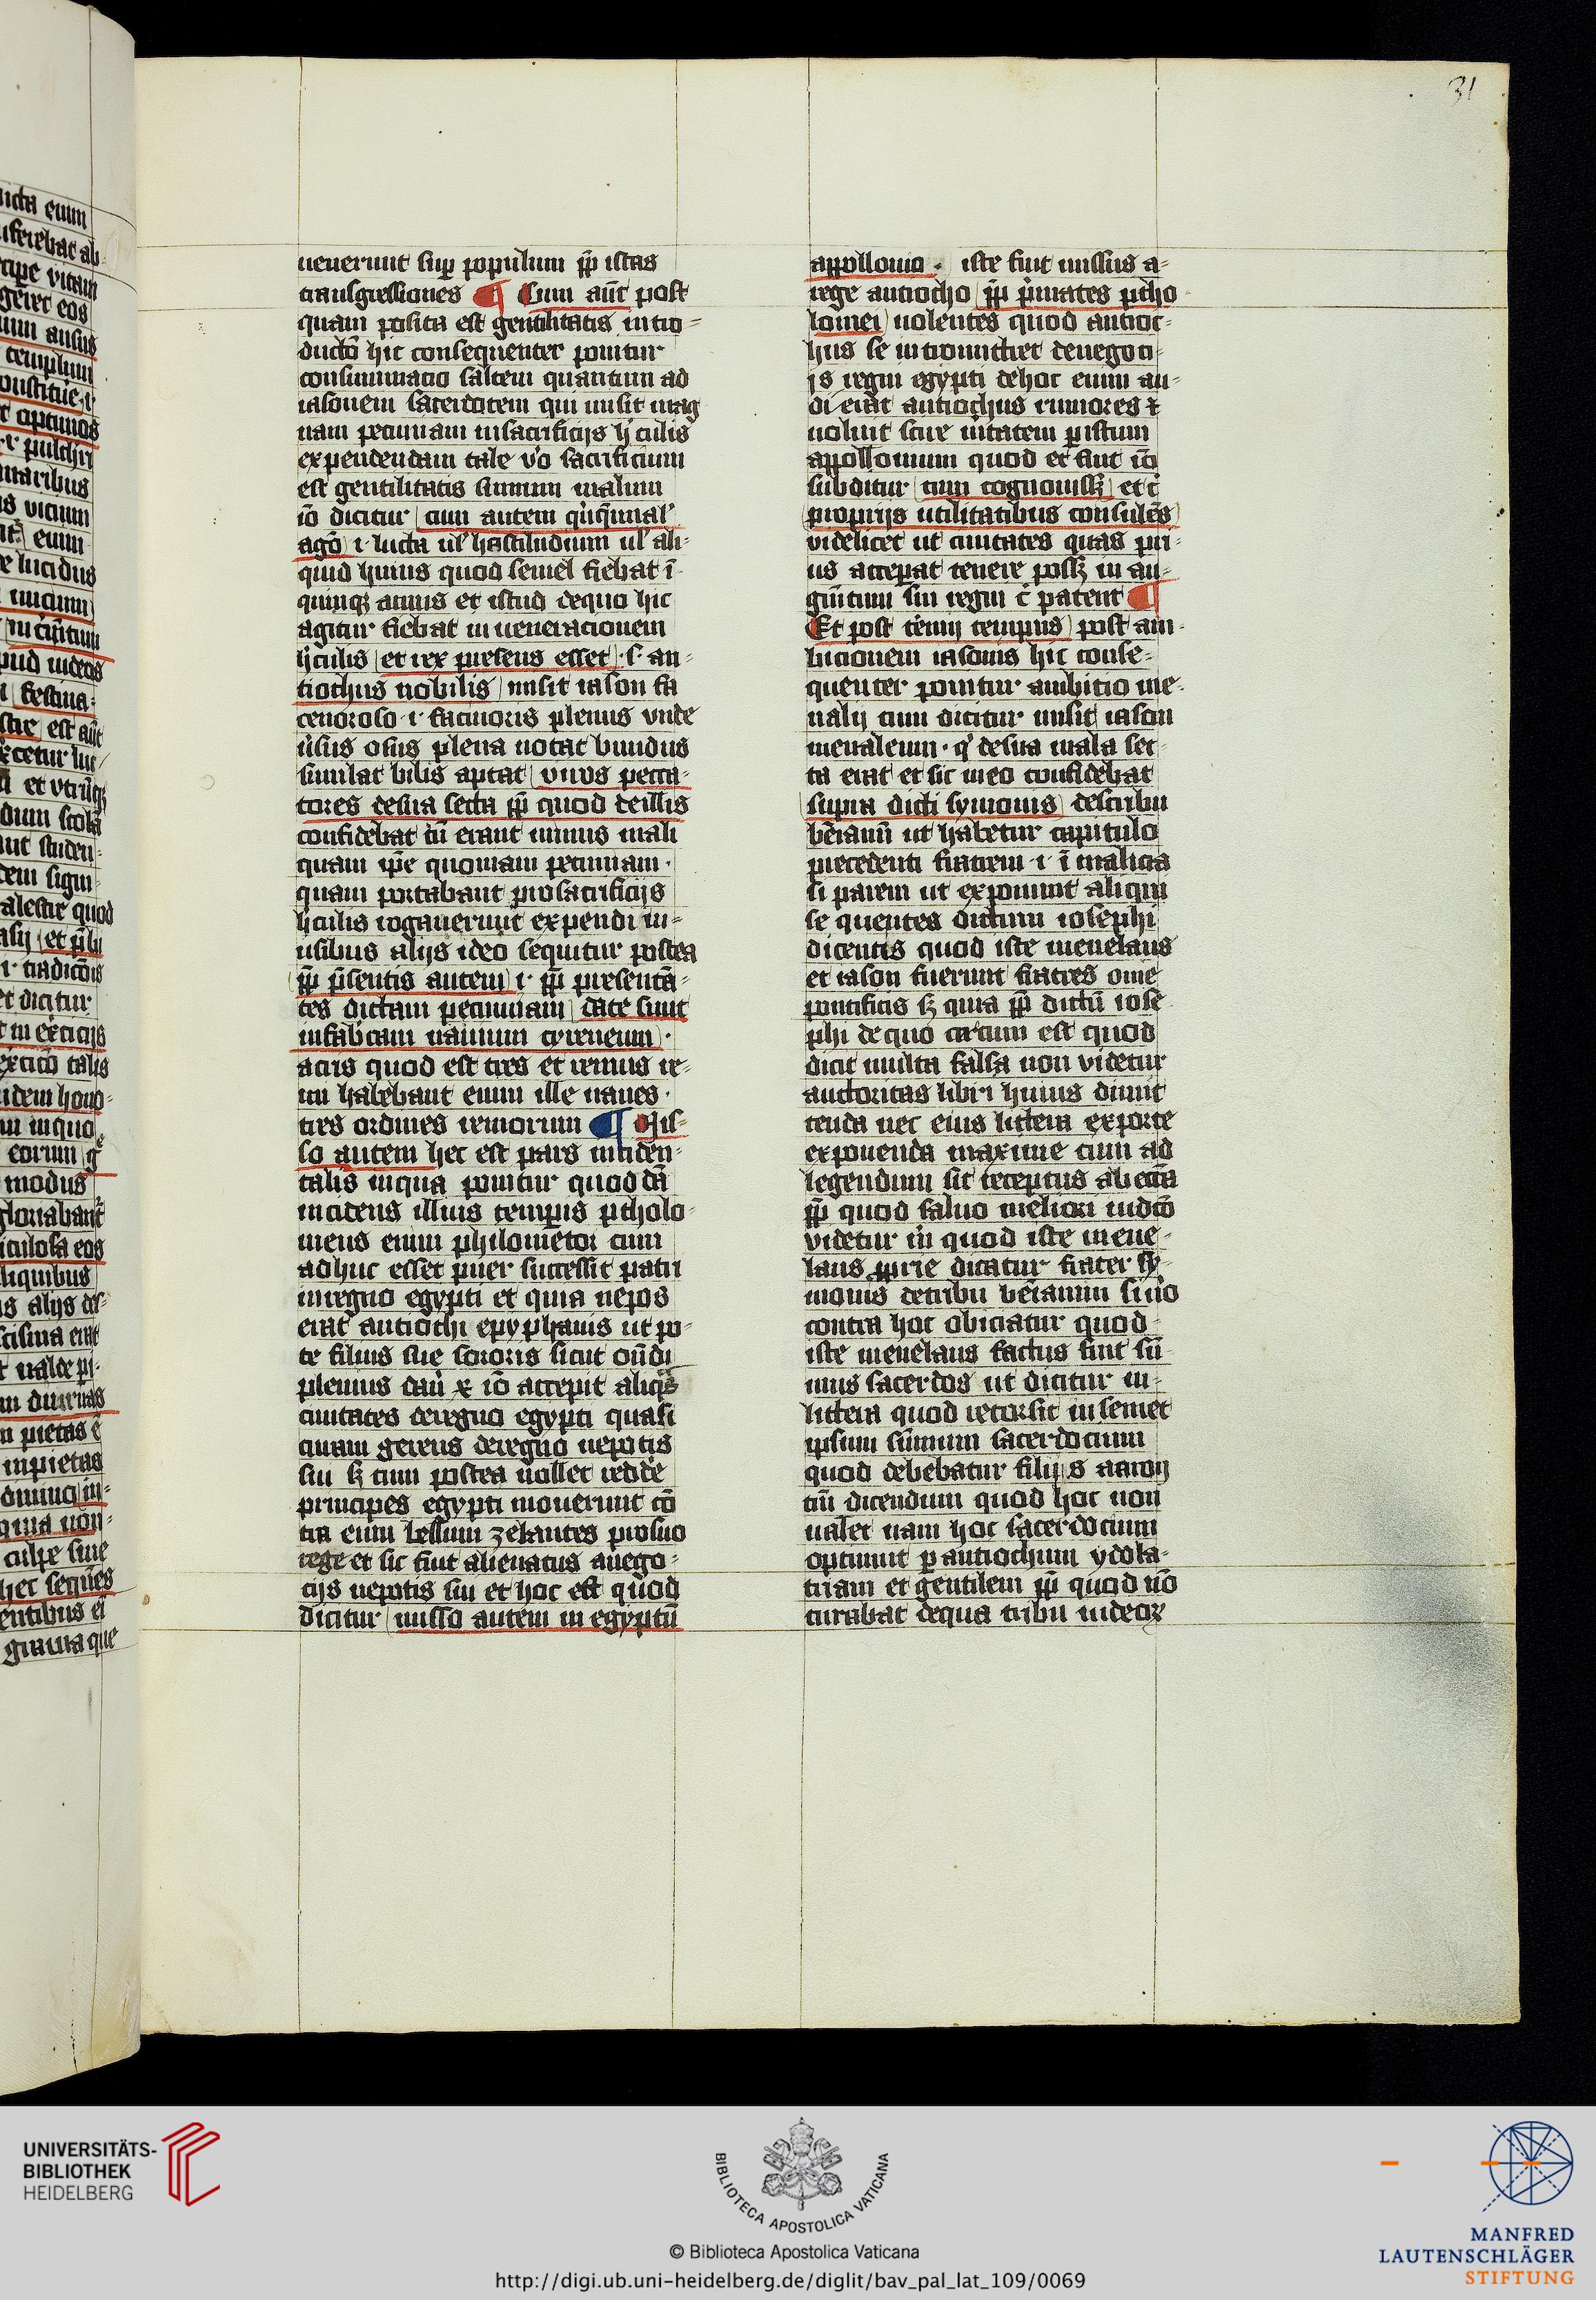 31
uenerunt sup populum ꝓp istas
transgressiones ¶ Cum aūt post
quam posita est gentilitatis intro-
ductō hic consequenter ponitur
consummatio saltem quantum ad
iasonem sacerdotem qui misit mag
nam pecuniam in sacrificijs h'culis
expendendam tale v'o sacrificium
est gentilitatis summum malum
iō dicitur cum autem
agō .i. lucta ul' hastiludium ul' ali-
quid huius quod semel fiebat ī
quinqꝫ annis et istud de quo hic
agitur fiebat in ueneracionem
h'culis et rex presens esset .s. an-
tiochus nobilis misit iason fa
cenoroso .i. facinoris plenus vnde
u'sus osus plena notat bundus
similat bilis aptat viros pecca-
tores de sua secta ꝓp quod de illis
confidebat tn̄ erant minus mali
quam ip̄e quoniam pecuniam
quam portabant pro sacrificijs
h'culis rogauerunt expendi in-
usibus alijs ideo sequitur postea
ꝓp p̄sentis autem .i. ꝓp presentā-
tes dictam pecuniam date sunt
in fabricam nauium trireneum
a tris quod est tres et remus re-
mi habebant enim ille naues
tres ordines remorum ¶ Mis-
so autem hec est pars inciden-
talis in qua ponitur quoddā
incidens illius temporis ptholo-
meus enim philometor cum
adhuc esset puer successit patri
in regno egypti et quia nepos
erat antiochi epyphanis ut po-
te filius sue sororis sicut on̄di
plenius dan̄ x iō accepit aliqͣs
ciuitates de regno egypti quasi
curam gerens de regno nepotis
sui sꝫ cum postea nollet redde
principes egypti mouerunt cō
tra eum bellum zelantes pro suo
rege et sic fuit alienatus a nego-
cijs nepotis sui et hoc est quod
dicitur misso autem in egyptū
appollonio . iste fuit missus a-
rege antiocho ꝓp p'mates ptho
lomei nolentes quod antioc-
hus se intromitteret de negoci-
js regni egypti de hoc enim au-
dierat antiochus rumores et
uoluit scire u'itatem p istum
appollonium quod et fuit iō
subditur cum cognouissꝫ et c̄
proprijs utilitatibus consulēs
videlicet ut ciuitates quas pri-
us acceperat tenere possꝫ in au-
gm̄tum sui regni c̄ patent ¶
Et post t'enij tempus post am-
bicionem iasonis hic conse-
quenter ponitur ambitio me-
nalij cum dicitur misit iason
menaleum . q' de sua mala sec-
ta erat et sic in eo confidebat
supra dicti symonis de tribu
beniamin ut habetur capitulo
precedenti fratrem .i. ī malicia
si parem ut exponunt aliqui
sequentes dictum iosephi
dicentis quod iste menelaus
et iason fuerunt fratres onie
pontificis sꝫ quia ꝓp dictū iose
phi de quo certum est quod
dicit multa falsa non videtur
auctoritas libri huius dimit
tenda nec eius littera exporte
exponenda maxime cum ad
legendum sit receptus ab ecc̄ia
ꝓp quod saluo meliori iudicō
videtur m' quod iste mene-
laus ꝓprie dicatur frater sy-
monis de tribu bēiamin si u'o
contra hoc obiciatur quod
iste menelaus factus fuit sū-
mus sacerdos ut dicitur in
littera quod retorsit in semet
ipsum summum sacerdocium
quod debebatur filijs aaron
tn̄ dicendum quod hoc non
ualet nam hoc sacerdocium
optinuit p antiochum ydola-
tram et gentilem ꝓp quod nō
curabat de qua tribu iudeoꝝ
UNIVERSITÄTS-
BIBLIOTHEK
HEIDELBERG
BIBLIOTECA APOSTOLICA VATICANA
© Biblioteca Apostolica Vaticana
http://digi.ub.uni-heidelberg.de/diglit/bav_pal_lat_109/0069
MANFRED
LAUTENSCHLÄGER
STIFTUNG